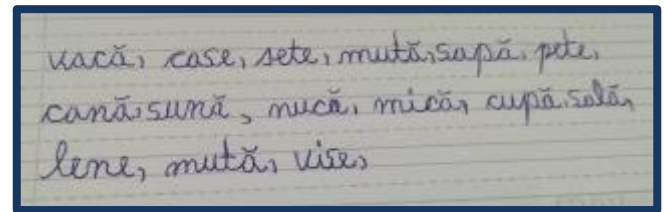 vacă, case, sete, mută, sapă, pete,
cană, sună, nucă, mică, cupă, sală,
lene, mută, vise,